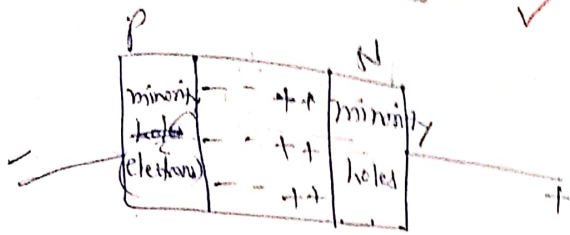 P
N
minority
holes
(electrons)
minority
holes
- - + +
- - + +
- - + +
-
+